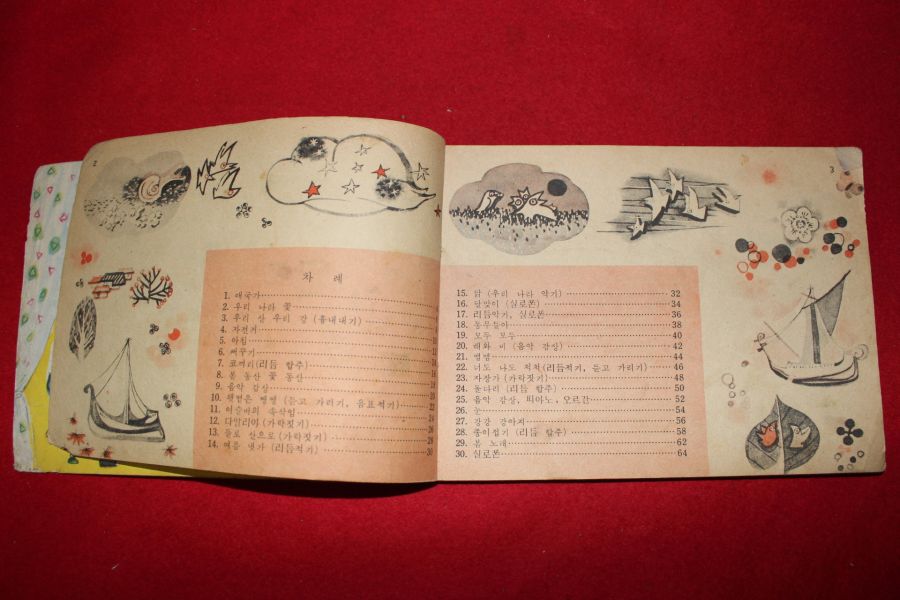 2
차 례
1. 애국가
2. 우리 나라 꽃
3. 우리 산 우리 강 (흉내내기)
4. 자전거
5. 아침
6. 뻐꾸기
7. 코끼리(리듬 합주)
8. 봄 동산 꽃 동산
9. 음악 감상
10. (듣고 가리기, 음표적기) 20
11. 속삭임 22
12. 다알리아 (가락짓기) 24
13. 들로 산으로 (가락짓기) 26
14. 여름 냇가 (리듬적기) 30
3
15. 닭 (우리 나라 악기) 32
16. 달맞이 (실로폰) 34
17. 리듬악기, 실로폰 36
18. 동무들아 38
19. 모두 모두 40
20. 해와 비 (음악 감상) 42
21. 별별 44
22. 너도 나도 척척 (리듬적기, 듣고 가리기) 46
23. 자장가 (가락짓기) 48
24. 돌다리 (리듬 합주) 50
25. 음악 감상, 피아노, 오르간 52
26. 눈 54
27. 강강 강아지 56
28. 종이접기 (리듬 합주) 58
29. 봄 노래 62
30. 실로폰 64